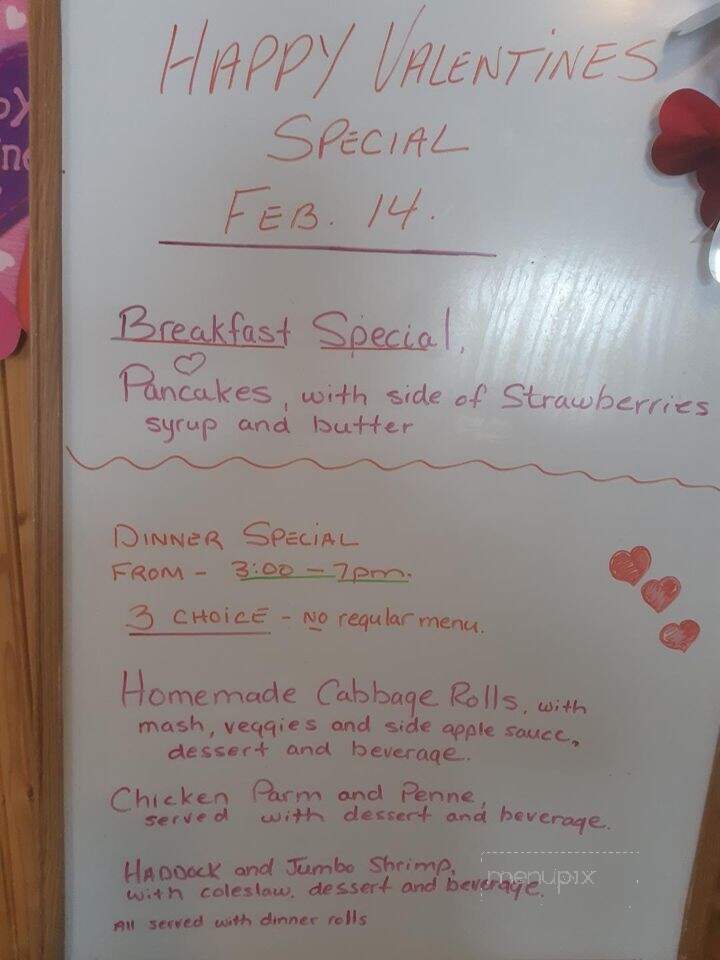 HAPPY VALENTINES
SPECIAL
FEB. 14.
Breakfast Special,
Pancakes, with side of Strawberries
syrup and butter
DINNER SPECIAL
FROM - 3:00 - 7pm.
3 CHOICE - NO regular menu.
Homemade Cabbage Rolls, with
mash, veggies and side apple sauce,
dessert and beverage.
Chicken Parm and Penne,
served with dessert and beverage.
HADDOCK and Jumbo Shrimp,
with coleslaw, dessert and beverage.
All served with dinner rolls
menupix